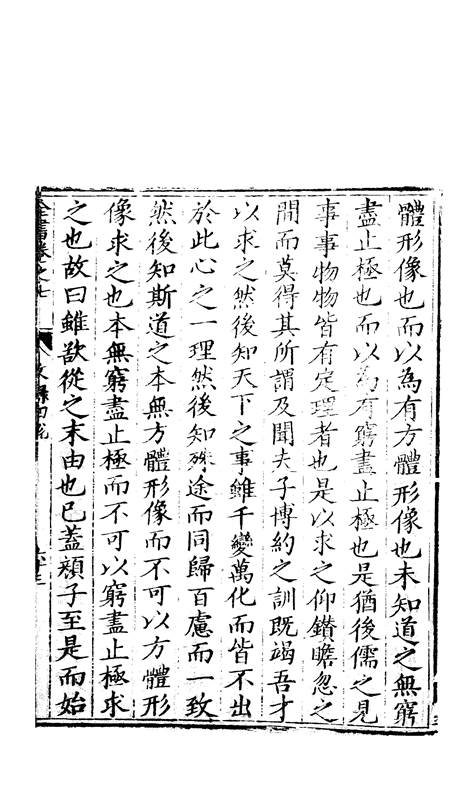 體形像也而以為有方體形像也未知道之無窮
盡止極也而以為有窮盡止極也是猶後儒之見
事事物物皆有定理者也是以求之仰鑚瞻忽之
間而莫得其所謂及聞夫子博約之訓既竭吾才
以求之然後知天下之事雖千變萬化而皆不出
於此心之一理然後知殊途而同歸百慮而一致
然後知斯道之本無方體形像而不可以方體形
像求之也本無窮盡止極而不可以窮盡止極求
之也故曰雖欲從之末由也已蓋顏子至是而始
全書卷之七 文錄四 說